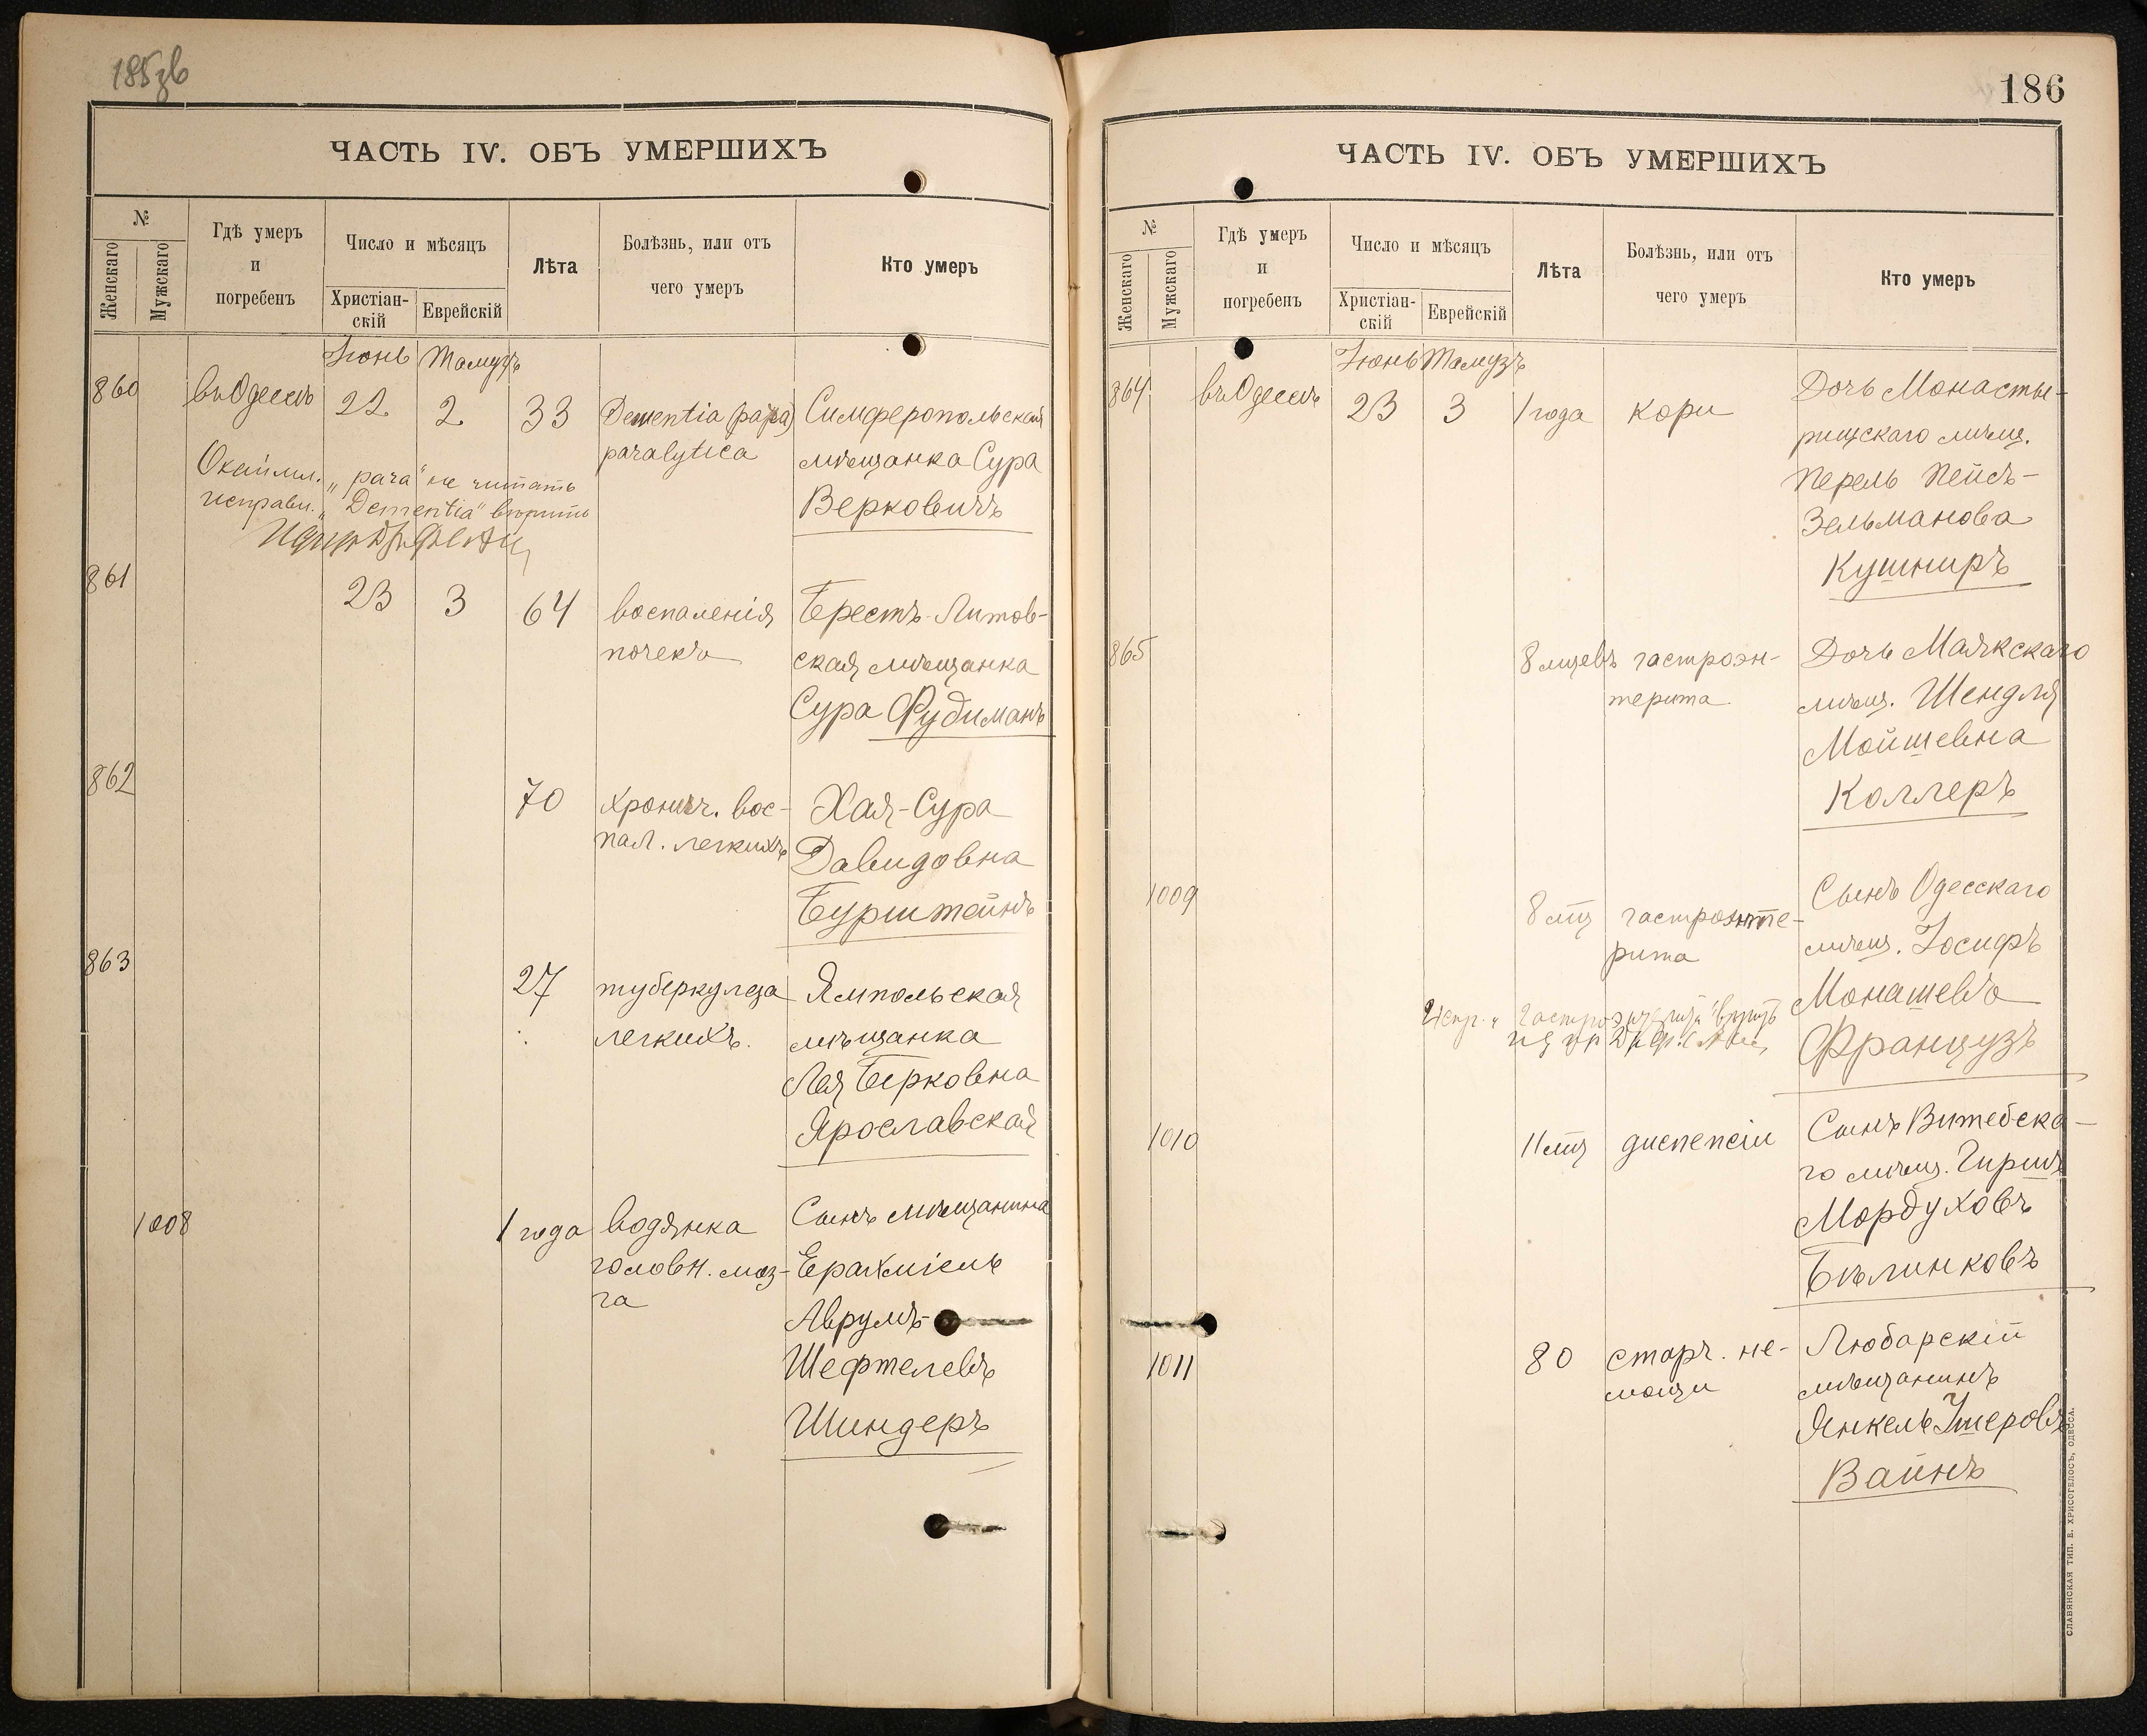 185 зв
ЧАСТЬ IV. ОБЪ УМЕРШИХЪ
№
Женскаго
Мужскаго
Гдѣ умеръ
и
погребенъ
Число и мѣсяцъ
Христіан-
скій
Еврейскій
Лѣта
Болѣзнь, или отъ
чего умеръ
Кто умеръ
Іюнь Тамузъ
860 въ Одессѣ 22 2 33 Dementia (para) Симферопольская
paralytica мѣщанка Сура
Верковичъ
Окаймл. „para“ не читать
исправл. „Dementia“ вѣрить
861 23 3 64 воспаленія Брестъ-Литов-
почекъ ская мѣщанка
Сура Фудиманъ
862 70 хронич. вос- Хая-Сура
пал. легкихъ Давидовна
Бурштейнъ
863 27 туберкулеза Ямпольская
легкихъ. мѣщанка
Лея Берковна
Ярославская
1008 1 года водянка Сынъ мѣщанина
головн. моз- Ерахміель
га
Аврумъ-
Шефтелевъ
Шиндеръ
186
ЧАСТЬ IV. ОБЪ УМЕРШИХЪ
№
Женскаго
Мужскаго
Гдѣ умеръ
и
погребенъ
Число и мѣсяцъ
Христіан-
скій
Еврейскій
Лѣта
Болѣзнь, или отъ
чего умеръ
Кто умеръ
Іюнь Тамузъ
864 въ Одессѣ 23 3 1 года кори Дочь Монасты-
рищскаго мѣщ.
Перель Пейсъ-
Зельманова
Кушниръ
865 8 мцевъ гастроэн- Дочь Маякскаго
терита мѣщ. Шендля
Мойшевна
Коллеръ
1009 8 мц гастроэнте- Сынъ Одесскаго
рита мѣщ. Іосифъ
Монашевъ
Испр. „гастроэнтерита“ вѣрить
Французъ
1010 11 мц диспепсіи Сынъ Витебска-
го мѣщ. Гиршъ
Мордуховъ
Бѣлинковъ
1011 80 старч. не- Любарскій
мощи мѣщанинъ
Янкель Ушеровъ
Вайнъ
СЛАВЯНСКАЯ ТИП. Е. ХРИСОГЕЛОСЪ, ОДЕССА.